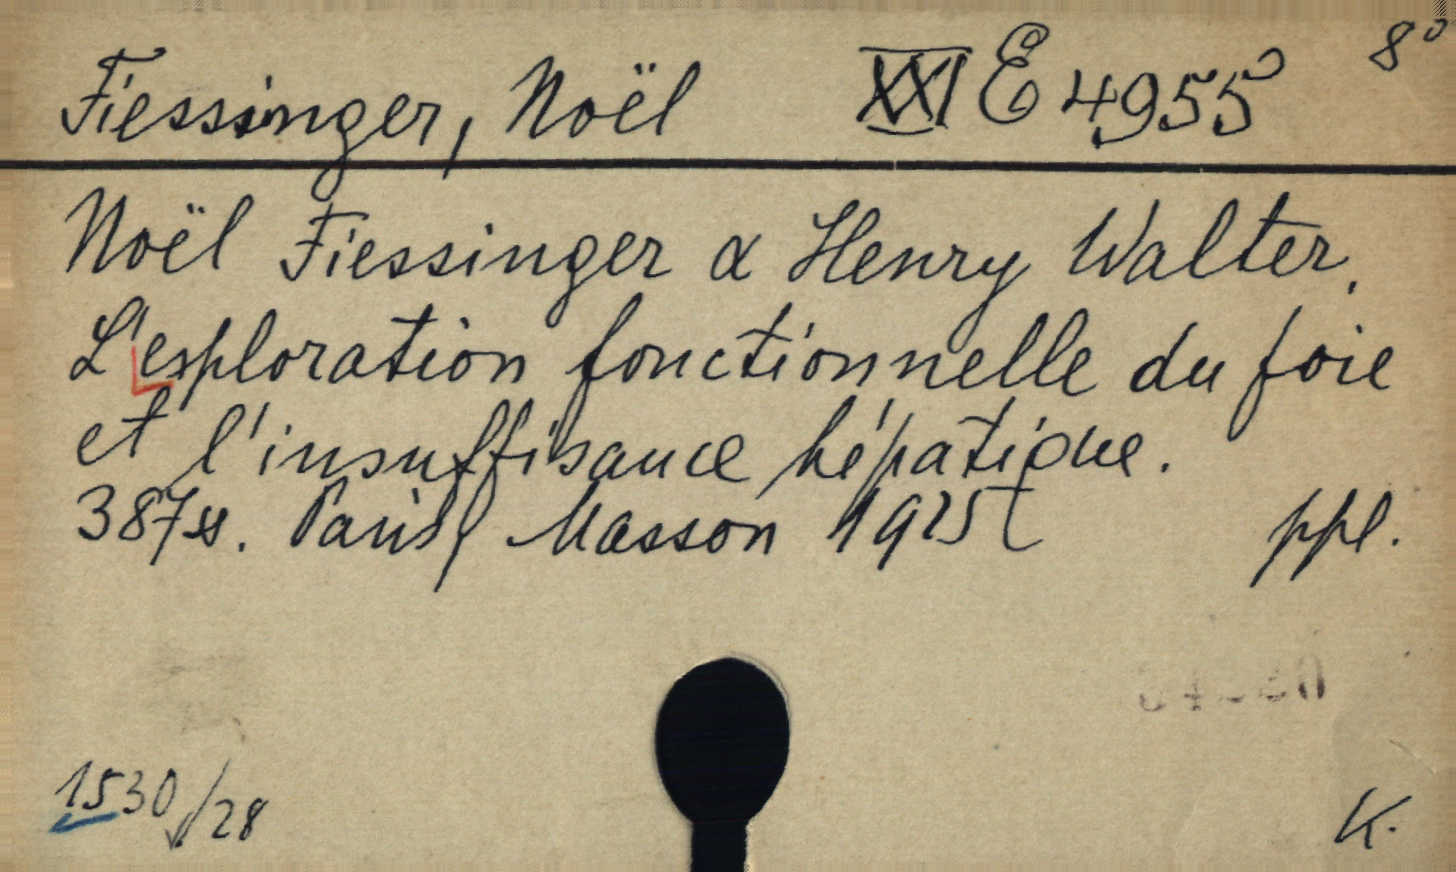 Fiessinger, Noël XXI E 4955 8°
Noël Fiessinger & Henry Walter.
L'exploration fonctionnelle du foie
et l'insuffisance hépatique.
387 ss. Paris, Masson 1925 ppl.
1530/28 K.